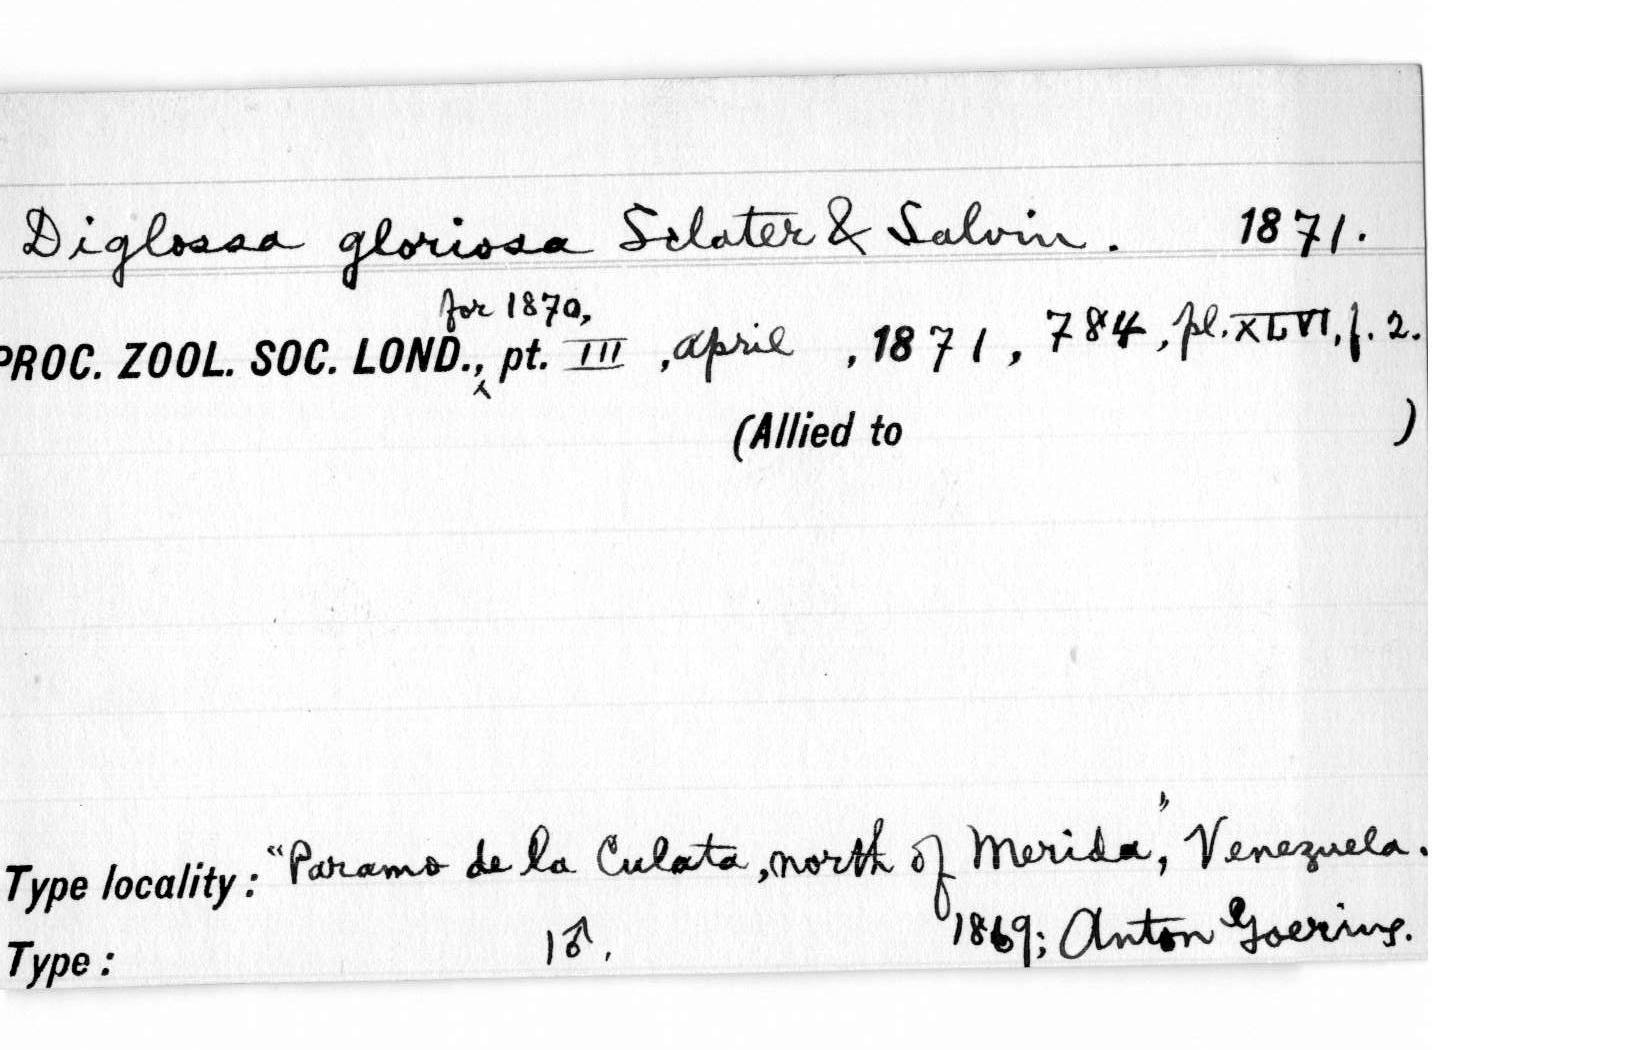 Diglossa gloriosa Sclater & Salvin. 1871.
for 1870,
PROC. ZOOL. SOC. LOND.,‸ pt. III, April, 1871, 784, pl. XLVI, f. 2.
(Allied to )
Type locality: "Paramo de la Culata, north of Merida," Venezuela.
Type: 1♂. 1869; Anton Goering.